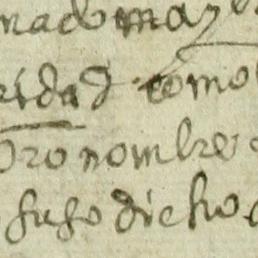 nado may
ridad como
bro nombre
suso dicho